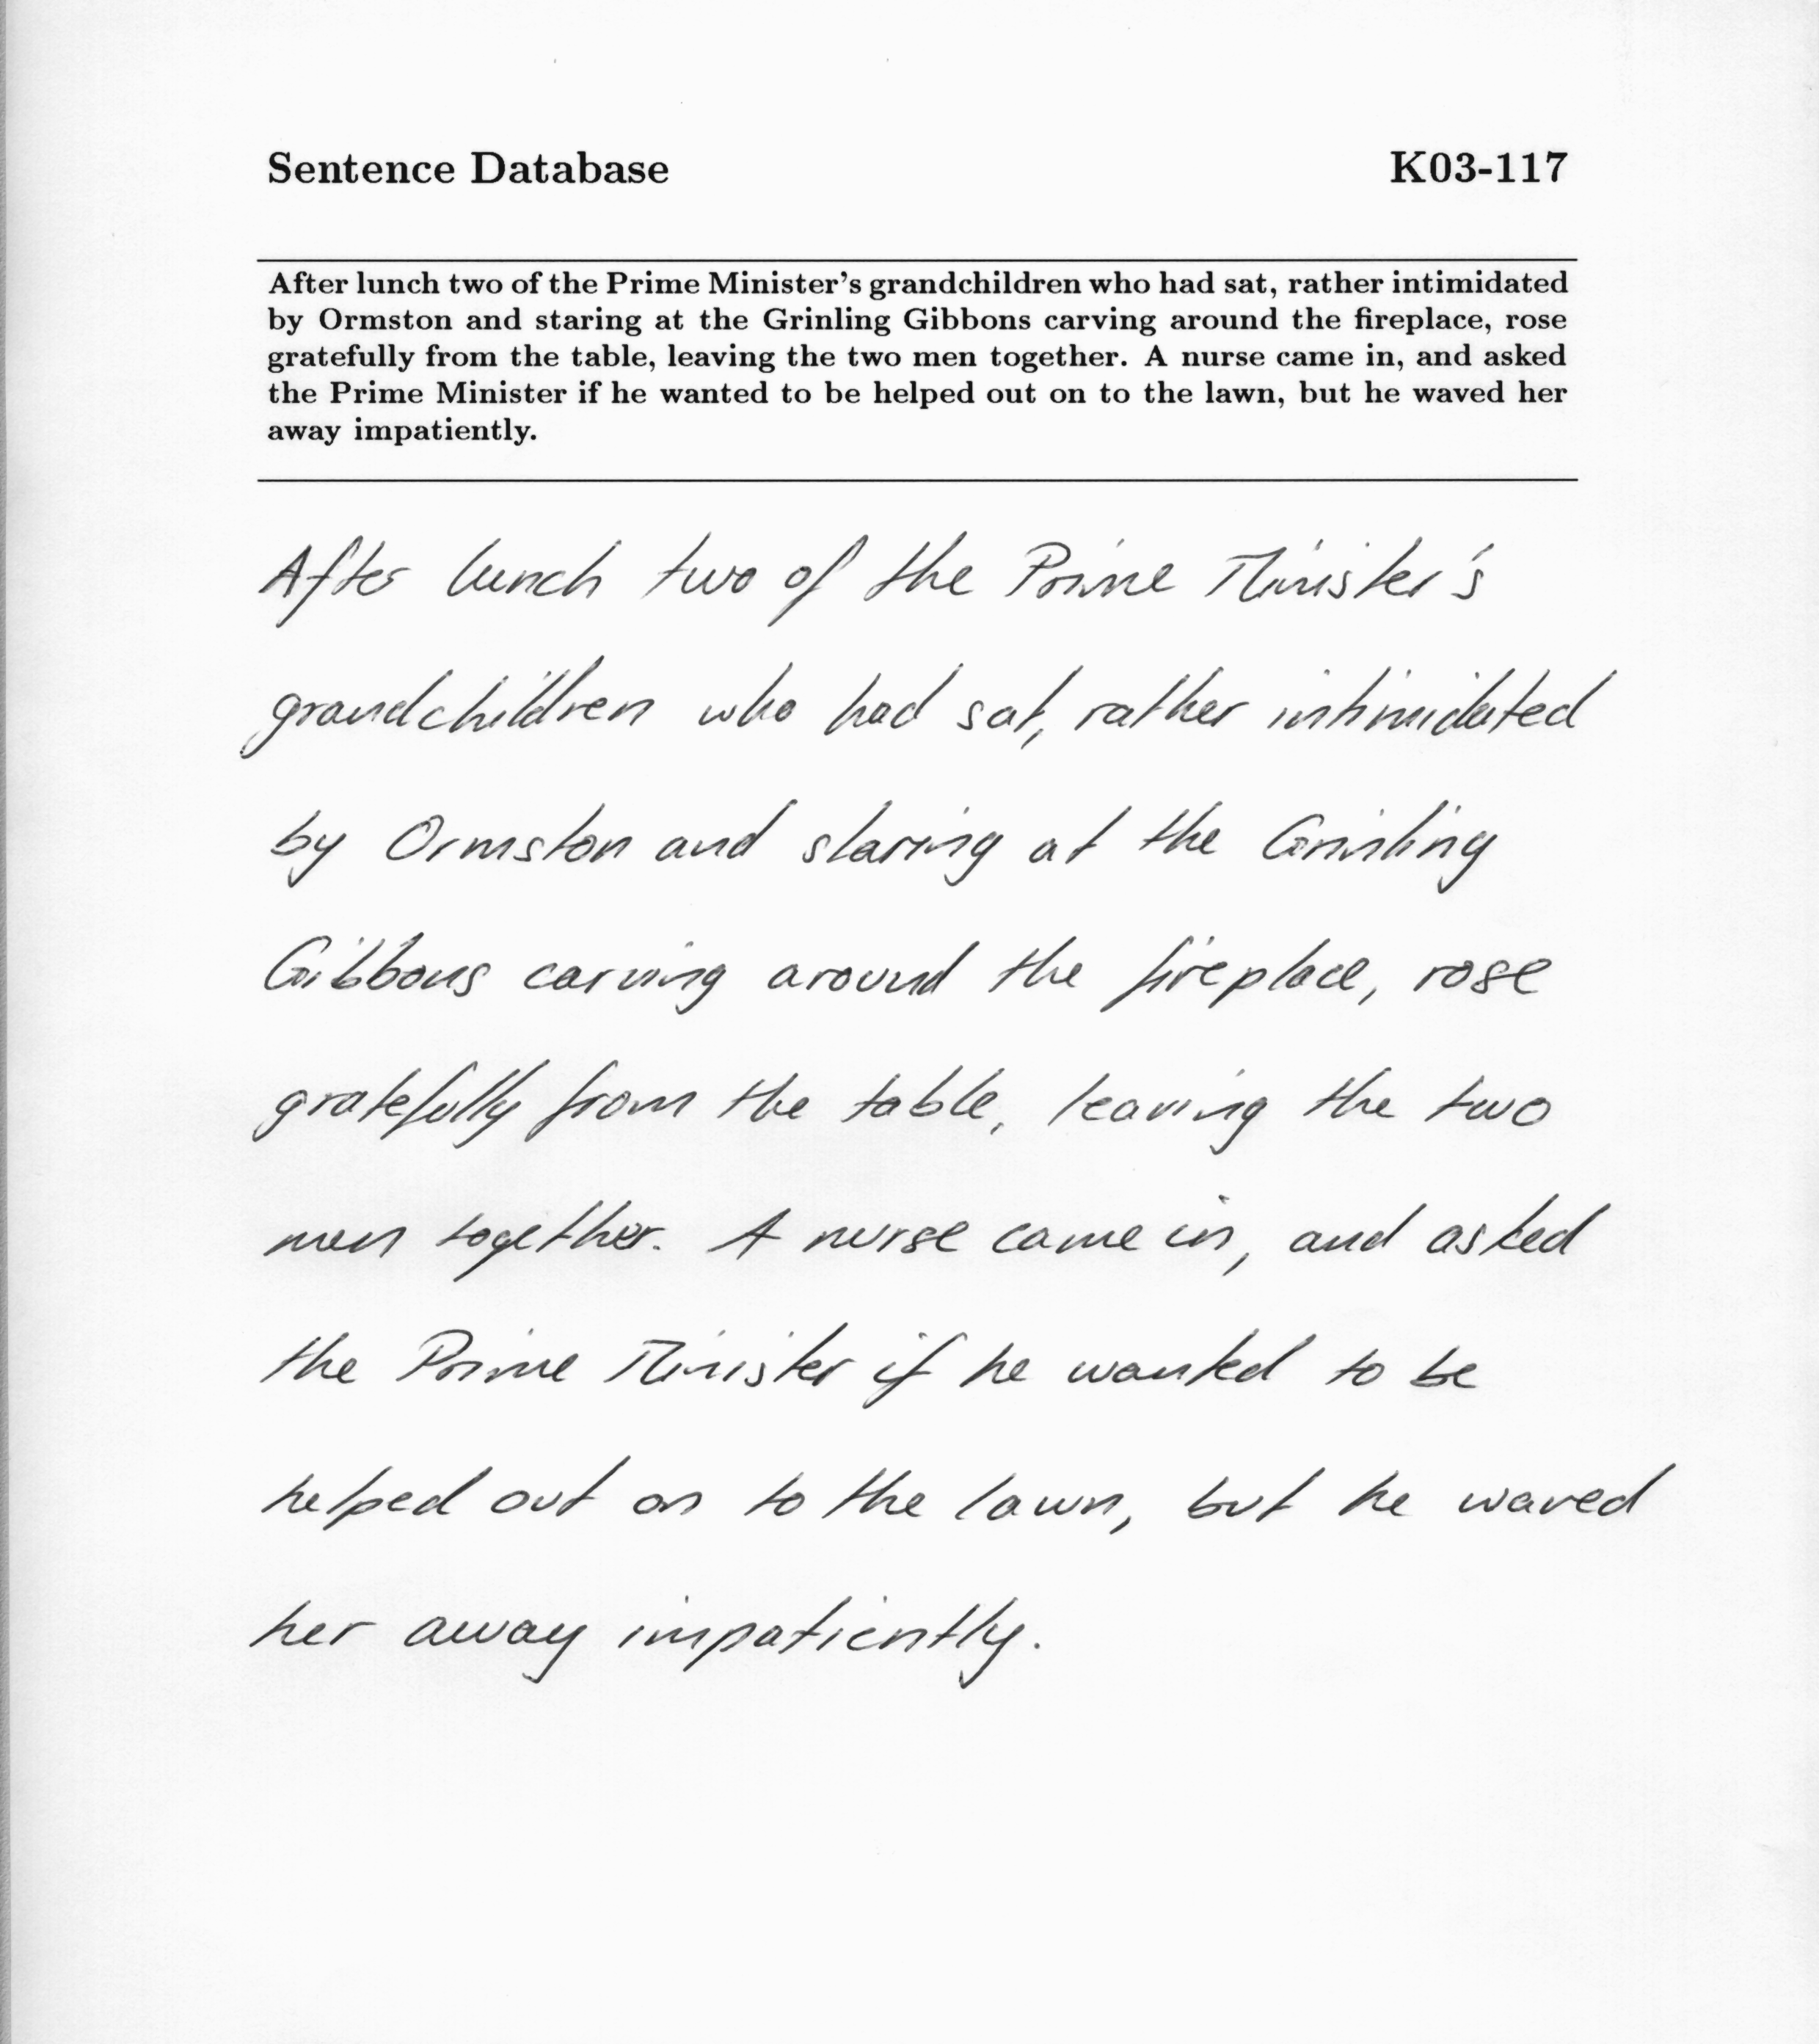 Sentence Database K03-117
After lunch two of the Prime Minister's grandchildren who had sat, rather intimidated
by Ormston and staring at the Grinling Gibbons carving around the fireplace, rose
gratefully from the table, leaving the two men together. A nurse came in, and asked
the Prime Minister if he wanted to be helped out on to the lawn, but he waved her
away impatiently.
After lunch two of the Prime Minister's
grandchildren who had sat, rather intimidated
by Ormston and staring at the Grinling
Gibbons carving around the fireplace, rose
gratefully from the table, leaving the two
men together. A nurse came in, and asked
the Prime Minister if he wanted to be
helped out on to the lawn, but he waved
her away impatiently.